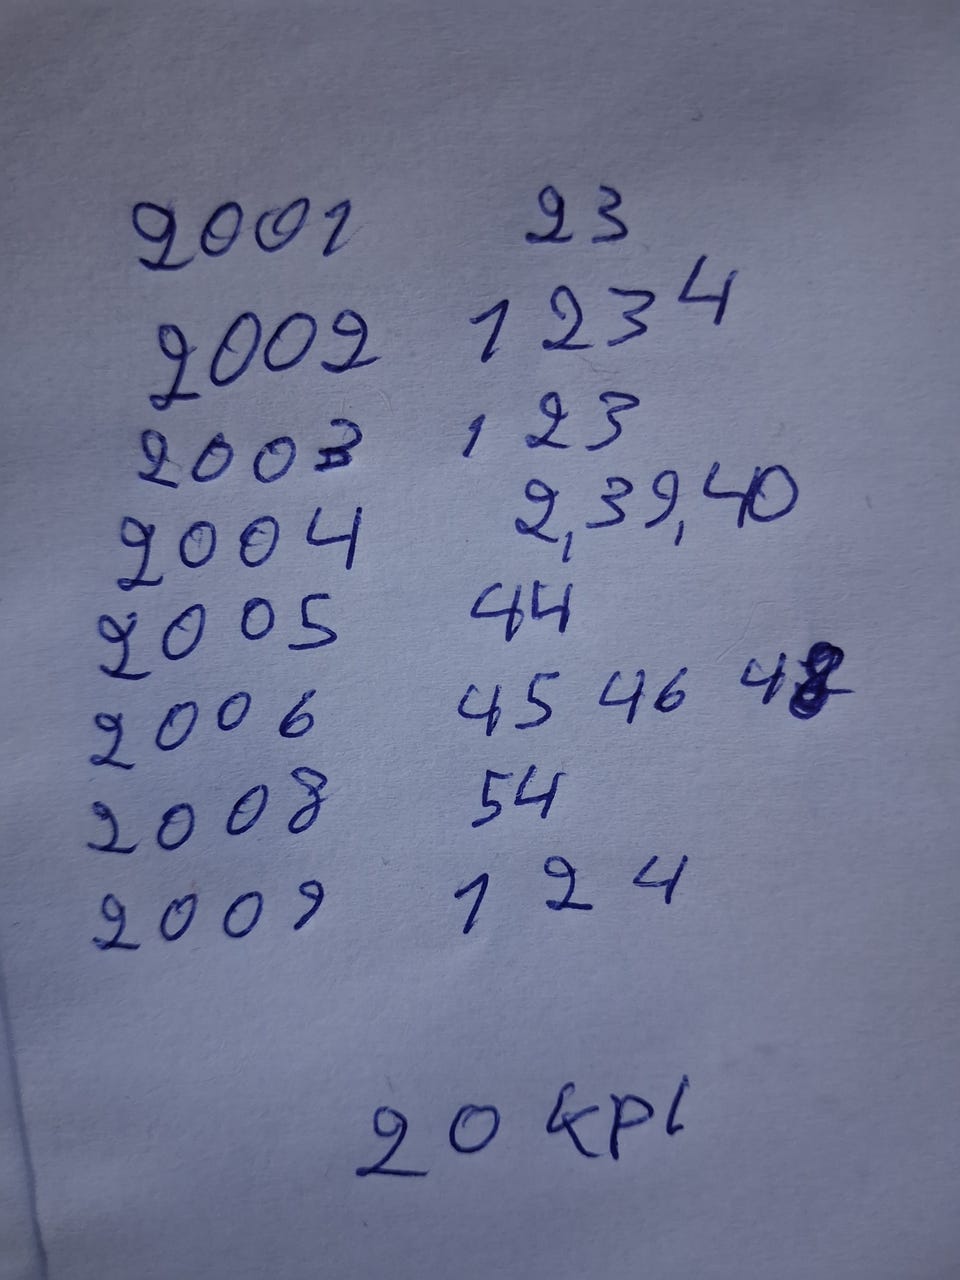 2001 23
2002 1 2 3 4
2003 1 2 3
2004 2,39,40
2005 44
2006 45 46 48
2008 54
2009 1 2 4
20 kpl